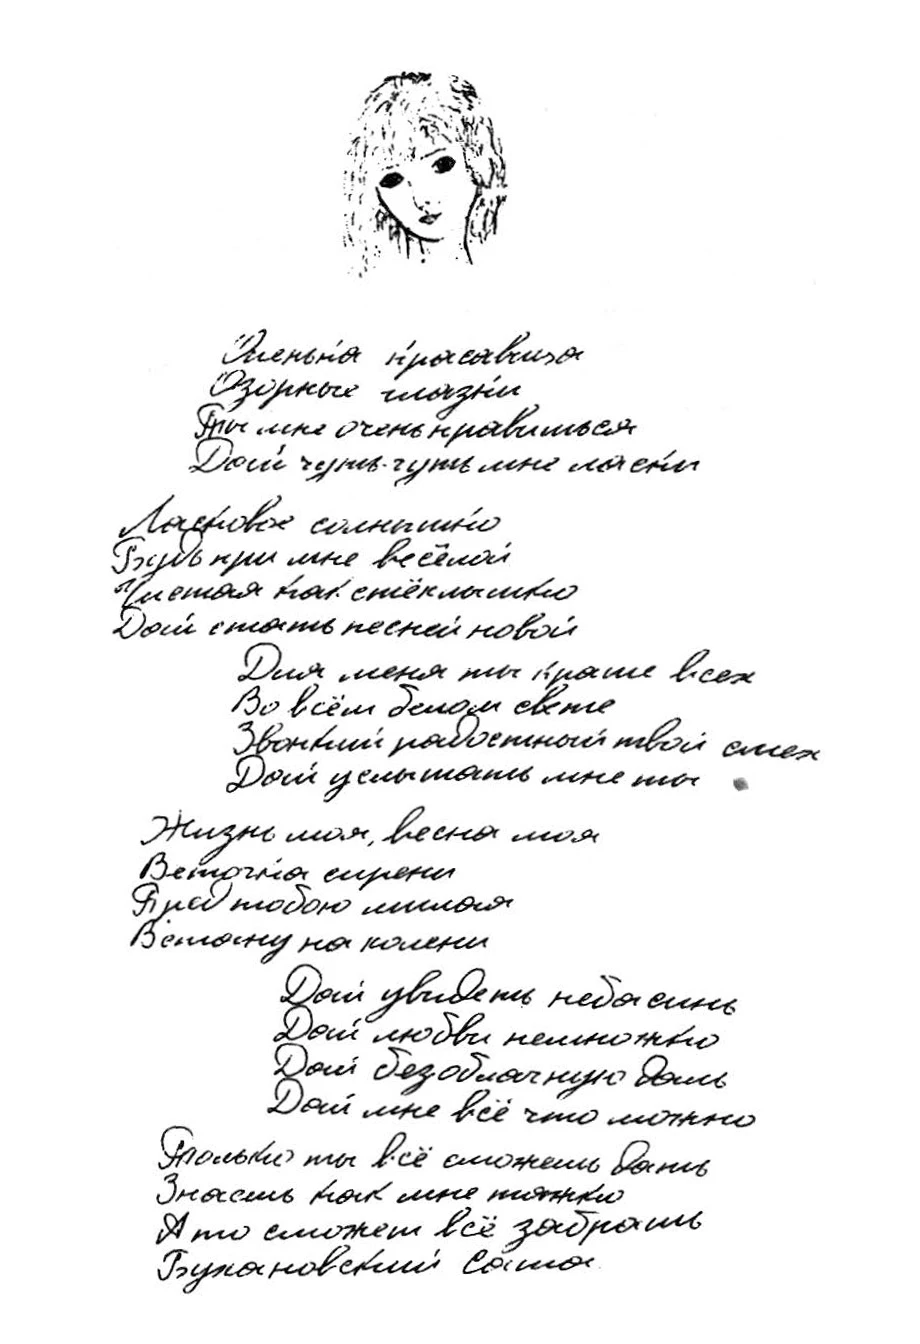 Оленька красавица
Озорные глазки
Ты мне очень нравишься
Дай чуть-чуть мне ласки
Ласковое солнышко
Будь при мне весёлой
Чистая как стёклышко
Дай стать песней новой
Для меня ты краше всех
Во всём белом свете
Звонкий радостный твой смех
Дай услышать мне ты
Жизнь моя, весна моя
Веточка сирени
Пред тобою милая
Встану на колени
Дай увидеть неба синь
Дай любви немножко
Дай безоблачную даль
Дай мне всё что можно
Только ты всё сможешь дать
Знаешь как мне тяжко
А то сможет всё забрать
Бухановский Саша